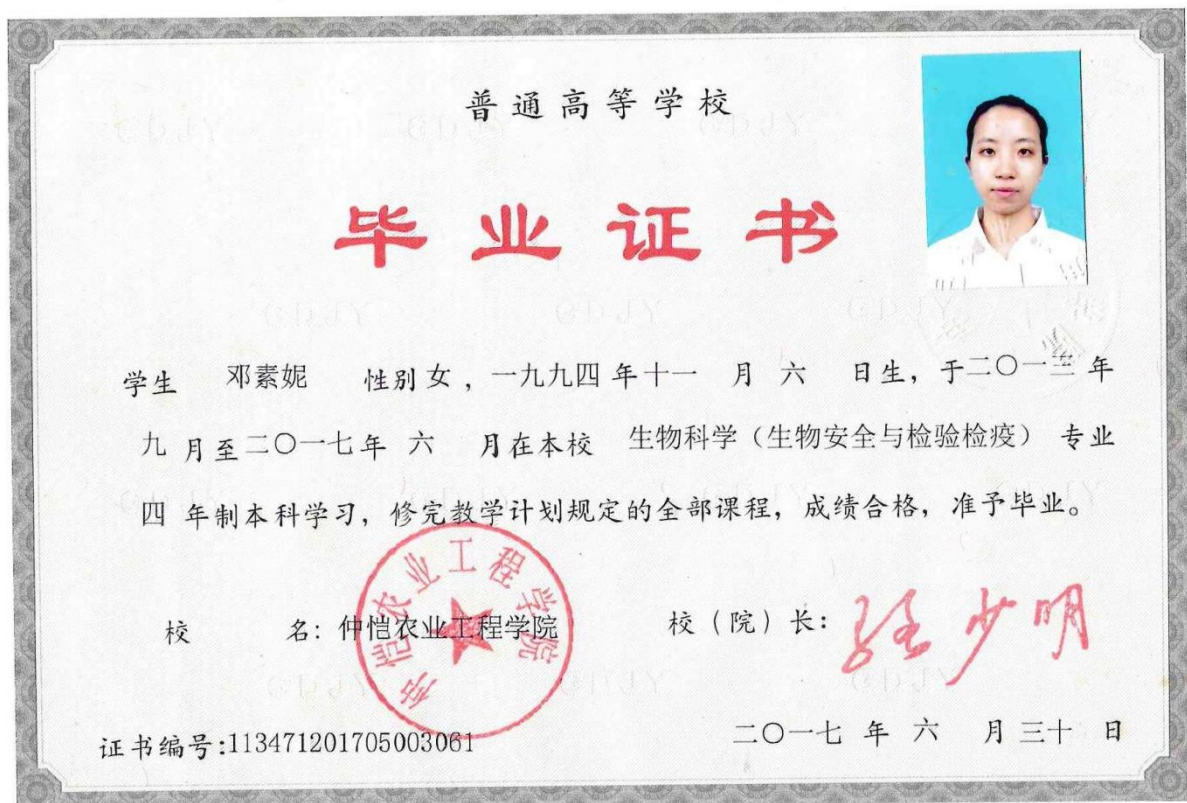 普通高等学校
毕业证书
学生 邓素妮 性别 女 ，一九九四 年 十一 月 六 日生，于二〇一三 年
九 月至二〇一七年 六 月在本校 生物科学（生物安全与检验检疫） 专业
四 年制本科学习，修完教学计划规定的全部课程，成绩合格，准予毕业。
仲恺农业工程学院
校 名：仲恺农业工程学院 校（院）长：骆少明
证书编号:113471201705003061 二〇一七 年 六 月 三十 日